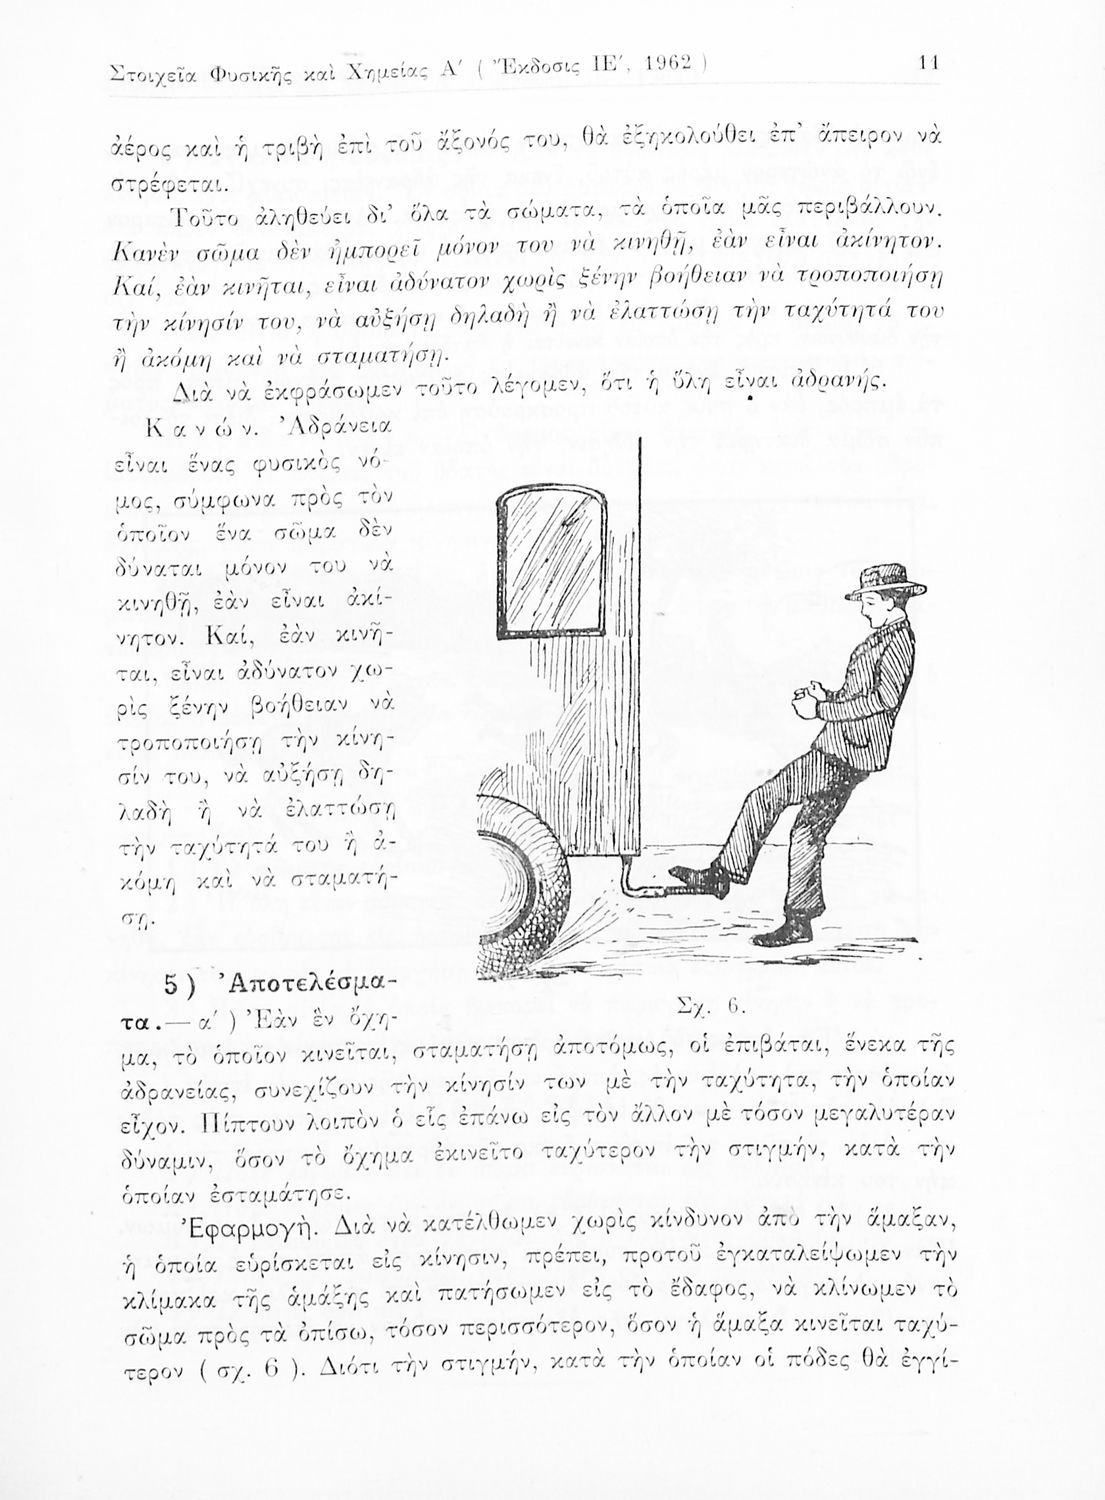 Στοιχεῖα Φυσικῆς καὶ Χημείας Α΄ ( Ἔκδοσις ΙΕ΄, 1962 ) 11
ἀέρος καὶ ἡ τριβὴ ἐπὶ τοῦ ἄξονός του, θὰ ἐξηκολούθει ἐπ’ ἄπειρον νὰ
στρέφεται.
Τοῦτο ἀληθεύει δι’ ὅλα τὰ σώματα, τὰ ὁποῖα μᾶς περιβάλλουν.
Κανὲν σῶμα δὲν ἠμπορεῖ μόνον του νὰ κινηθῇ, ἐὰν εἶναι ἀκίνητον.
Καί, ἐὰν κινῆται, εἶναι ἀδύνατον χωρὶς ξένην βοήθειαν νὰ τροποποιήσῃ
τὴν κίνησίν του, νὰ αὐξήσῃ δηλαδὴ ἢ νὰ ἐλαττώσῃ τὴν ταχύτητά του
ἢ ἀκόμη καὶ νὰ σταματήσῃ.
Διὰ νὰ ἐκφράσωμεν τοῦτο λέγομεν, ὅτι ἡ ὕλη εἶναι ἀδρανής.
Κανών. Ἀδράνεια
εἶναι ἕνας φυσικὸς νό-
μος, σύμφωνα πρὸς τὸν
ὁποῖον ἕνα σῶμα δὲν
δύναται μόνον του νὰ
κινηθῇ, ἐὰν εἶναι ἀκί-
νητον. Καί, ἐὰν κινῆ-
ται, εἶναι ἀδύνατον χω-
ρὶς ξένην βοήθειαν νὰ
τροποποιήσῃ τὴν κίνη-
σίν του, νὰ αὐξήσῃ δη-
λαδὴ ἢ νὰ ἐλαττώσῃ
τὴν ταχύτητά του ἢ ἀ-
κόμη καὶ νὰ σταματή-
σῃ.
Σχ. 6.
5 ) Ἀποτελέσμα-
τα.— α΄ ) Ἐὰν ἓν ὄχη-
μα, τὸ ὁποῖον κινεῖται, σταματήσῃ ἀποτόμως, οἱ ἐπιβάται, ἕνεκα τῆς
ἀδρανείας, συνεχίζουν τὴν κίνησίν των μὲ τὴν ταχύτητα, τὴν ὁποίαν
εἶχον. Πίπτουν λοιπὸν ὁ εἷς ἐπάνω εἰς τὸν ἄλλον μὲ τόσον μεγαλυτέραν
δύναμιν, ὅσον τὸ ὄχημα ἐκινεῖτο ταχύτερον τὴν στιγμήν, κατὰ τὴν
ὁποίαν ἐσταμάτησε.
Ἐφαρμογὴ. Διὰ νὰ κατέλθωμεν χωρὶς κίνδυνον ἀπὸ τὴν ἅμαξαν,
ἡ ὁποία εὑρίσκεται εἰς κίνησιν, πρέπει, προτοῦ ἐγκαταλείψωμεν τὴν
κλίμακα τῆς ἁμάξης καὶ πατήσωμεν εἰς τὸ ἔδαφος, νὰ κλίνωμεν τὸ
σῶμα πρὸς τὰ ὀπίσω, τόσον περισσότερον, ὅσον ἡ ἅμαξα κινεῖται ταχύ-
τερον ( σχ. 6 ). Διότι τὴν στιγμήν, κατὰ τὴν ὁποίαν οἱ πόδες θὰ ἐγγί-